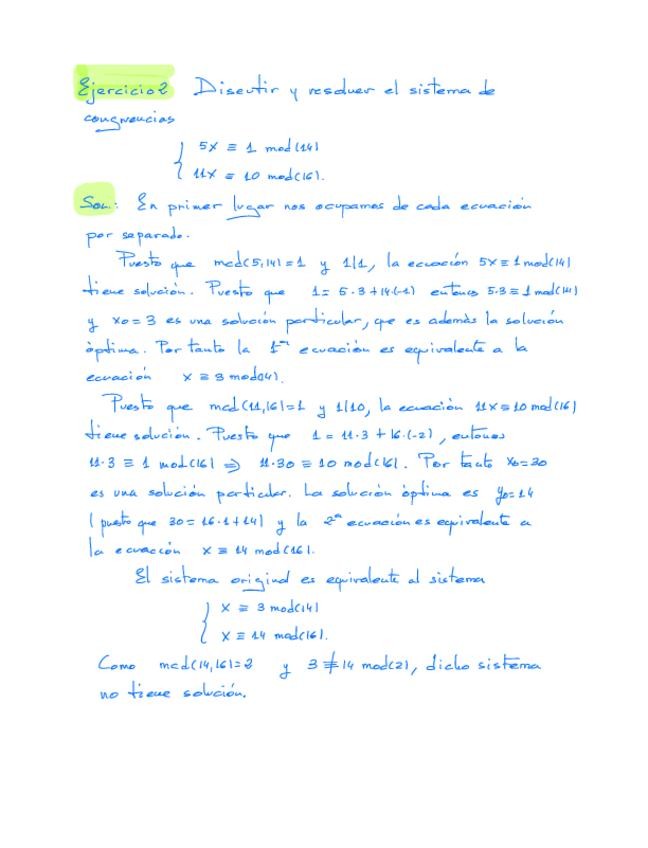 Ejercicio 2 Discutir y resolver el sistema de
congruencias
5x ≡ 1 mod(14)
11x ≡ 10 mod(16).
Soln.: En primer lugar nos ocupamos de cada ecuación
por separado.
Puesto que mcd(5,14)=1 y 1|1, la ecuación 5x≡1 mod(14)
tiene solución. Puesto que 1= 5·3+14·(-1) entonces 5·3≡1 mod(14)
y x0=3 es una solución particular, que es además la solución
óptima. Por tanto la 1ª ecuación es equivalente a la
ecuación x≡3 mod(14).
Puesto que mcd(11,16)=1 y 1|10, la ecuación 11x≡10 mod(16)
tiene solución. Puesto que 1=11·3+16·(-2), entonces
11·3≡1 mod(16) ⇒ 11·30≡10 mod(16). Por tanto x0=30
es una solución particular. La solución óptima es y0=14
(puesto que 30=16·1+14) y la 2ª ecuación es equivalente a
la ecuación x≡14 mod(16).
El sistema original es equivalente al sistema
x≡3 mod(14)
x≡14 mod(16).
Como mcd(14,16)=2 y 3≢14 mod(2), dicho sistema
no tiene solución.